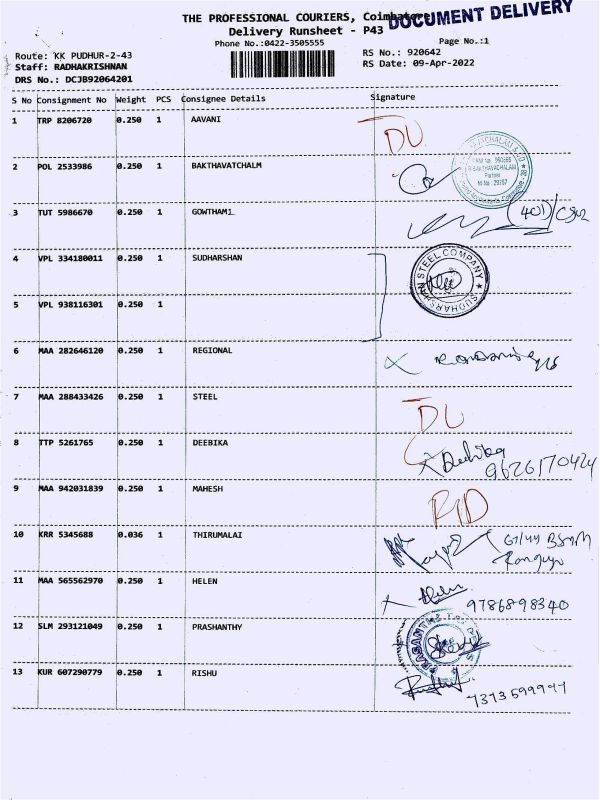 THE PROFESSIONAL COURIERS, Coimbatore
DOCUMENT DELIVERY
Delivery Runsheet - P43
Phone No.:0422-3505555
Page No.:1
Route: KK PUDHUR-2-43
RS No.: 920642
Staff: RADHAKRISHNAN
RS Date: 09-Apr-2022
DRS No.: DCJB92064201
S No Consignment No Weight PCS Consignee Details Signature
1 TRP 8206720 0.250 1 AAVANI DU
2 POL 2533986 0.250 1 BAKTHAVATCHALM
3 TUT 5986670 0.250 1 GOWTHAM1
4 VPL 334180011 0.250 1 SUDHARSHAN SUDHARSHAN STEEL COMPANY
5 VPL 938116301 0.250 1
6 MAA 282646120 0.250 1 REGIONAL
7 MAA 288433426 0.250 1 STEEL DU
8 TTP 5261765 0.250 1 DEEBIKA Deebika
9626170424
9 MAA 942031839 0.250 1 MAHESH
10 KRR 5345688 0.036 1 THIRUMALAI
11 MAA 565562970 0.250 1 HELEN Helen
9786898340
12 SLM 293121049 0.250 1 PRASHANTHY
13 KUR 607290779 0.250 1 RISHU